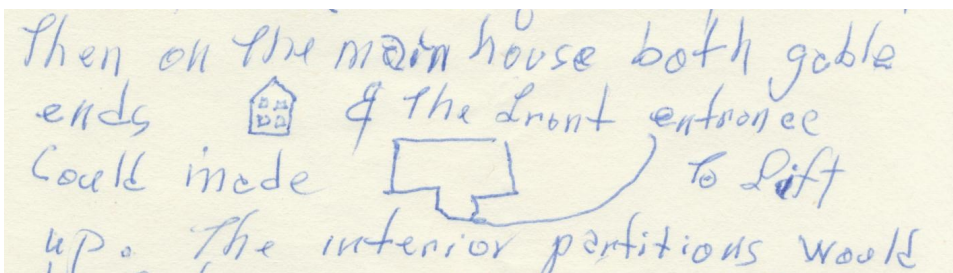 Then on the main house both gable
ends & the front entrance
Could made to lift
up. The interior partitions would